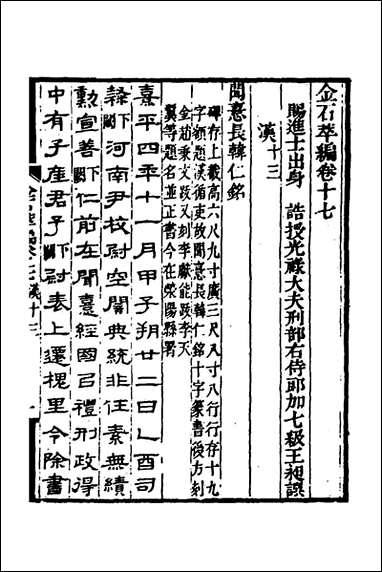 金石萃編卷十七
賜進士出身 誥授光祿大夫刑部右侍郎加七級王昶譔
漢十三
聞憙長韓仁銘
碑存上截高六尺九寸廣三尺八寸八行行存十九
字額題漢循吏故聞憙長韓仁銘十字篆書後方刻
金趙秉文跋又刻李獻能跋李天
翼等題名並正書今在滎陽縣署
熹平四年十一月甲子朔廿二日乙酉司
隸下闕河南尹校尉空闇典統非任素無績
勳宣善下闕仁前在聞憙經國以禮刑政得
中有子產君子下闕尉表上遷槐里令除書
金石萃編卷十七漢十三
一